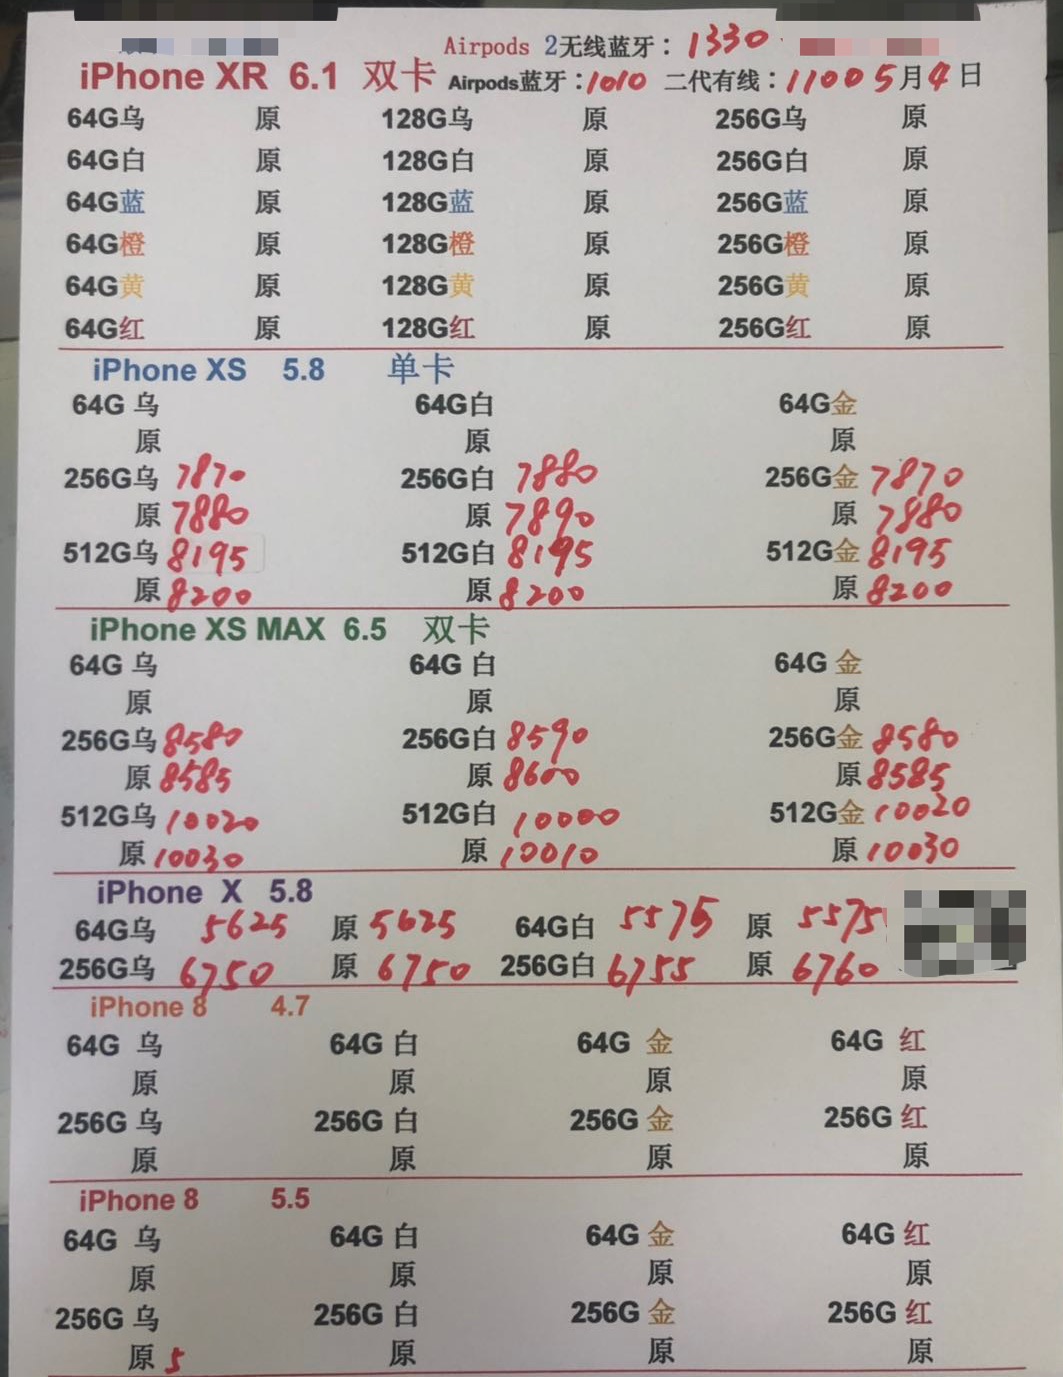 Airpods 2无线蓝牙：1330
iPhone XR 6.1 双卡 Airpods蓝牙：1010 二代有线：1100 5月4日
64G乌 原 128G乌 原 256G乌 原
64G白 原 128G白 原 256G白 原
64G蓝 原 128G蓝 原 256G蓝 原
64G橙 原 128G橙 原 256G橙 原
64G黄 原 128G黄 原 256G黄 原
64G红 原 128G红 原 256G红 原
iPhone XS 5.8 单卡
64G 乌 64G白 64G金
原 原 原
256G乌 7870 256G白 7880 256G金 7870
原 7880 原 7890 原 7880
512G乌 8195 512G白 8195 512G金 8195
原 8200 原 8200 原 8200
iPhone XS MAX 6.5 双卡
64G 乌 64G 白 64G 金
原 原 原
256G乌 8580 256G白 8590 256G金 8580
原 8585 原 8600 原 8585
512G乌 10020 512G白 10000 512G金 10020
原 10030 原 10010 原 10030
iPhone X 5.8
64G乌 5625 原 5625 64G白 5575 原 5575
256G乌 6750 原 6750 256G白 6755 原 6760
iPhone 8 4.7
64G 乌 64G 白 64G 金 64G 红
原 原 原 原
256G 乌 256G 白 256G 金 256G 红
原 原 原 原
iPhone 8 5.5
64G 乌 64G 白 64G 金 64G 红
原 原 原 原
256G 乌 256G 白 256G 金 256G 红
原 5 原 原 原